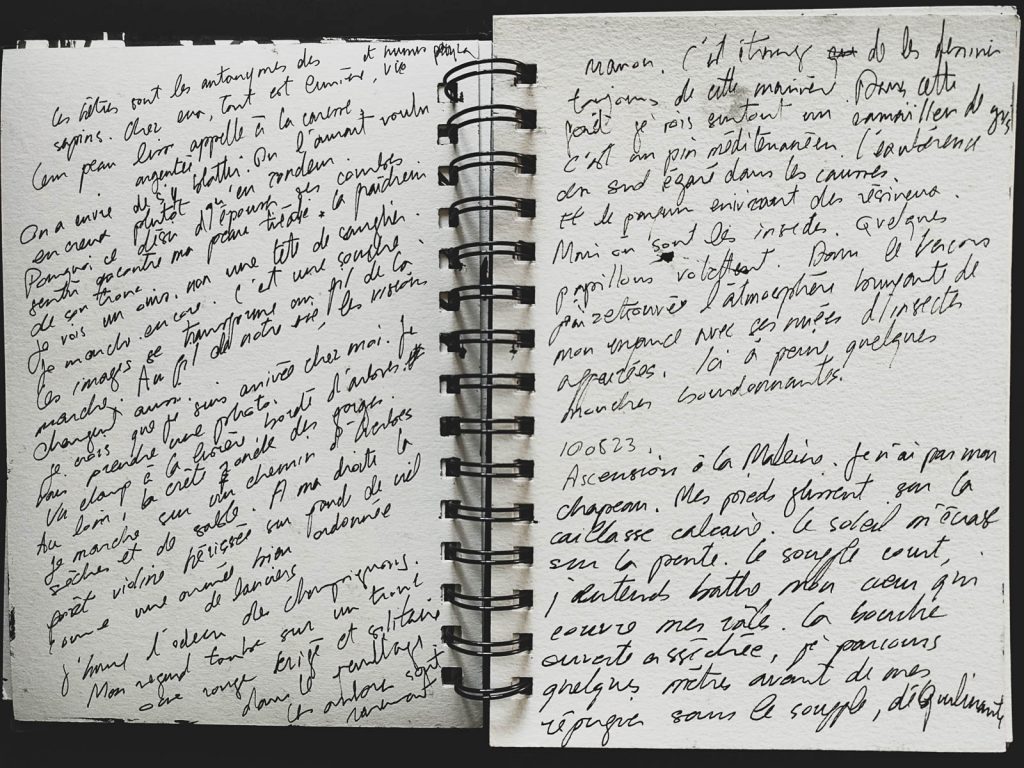 Les hêtres sont les antonymes des
sapins. Chez eux, tout est lumière, vie
et humus
Leur peau lisse appelle à la caresse
argentée
On a envie de s'y blottir. On l'aurait voulu
en creux plutôt qu'en rondeur.
Pourquoi ce désir d'épouser ses courbes
sentir contre ma peau tiède la fraîcheur
de son tronc.
Je vois un ours, non une tête de sanglier.
Je marche encore. C'est une souche.
Les images se transforme au fil de la
marche. Au fil de notre vie, les visions
changent aussi.
Je crois que je suis arrivée chez moi. Je
vais prendre une photo.
Un champ à la lisière bordé d'arbres.
Au loin, la crête ronde des gorges.
Je marche sur un chemin d'herbes
sèches et de sable. A ma droite la
forêt violine hérissée sur fond de ciel
comme une armée bien ordonnée
de lanciers
J'hume l'odeur des champignons.
Mon regard tombe sur un tronc
ocre rouge érigé et solitaire
dans le
Les arbres sont
rarement
marron. C'est étrange de les dessiner
toujours de cette manière. Dans cette
forêt je vois surtout un camaïeu de gris
C'est un pin méditerranéen. L'exubérence
du sud égaré dans les causses.
Et le parfum enivrant des résineux.
Mais où sont les insectes. Quelques
papillons volettent. Dans le Vercors
j'ai retrouvé l'atmosphère bruyante de
mon enfance avec ses nuées d'insectes
affairées. Ici à peine quelques
mouches bourdonnantes.
100823.
Ascension à la Malène. Je n'ai pas mon
chapeau. Mes pieds glissent sur la
caillasse calcaire. Le soleil m'écrase
sur la pente. Le souffle court,
j'entends battre mon cœur qui
couvre mes râles. La bouche
ouverte asséchée, je parcours
quelques mètres avant de me
réfugier sous le souffle, dégoulinante